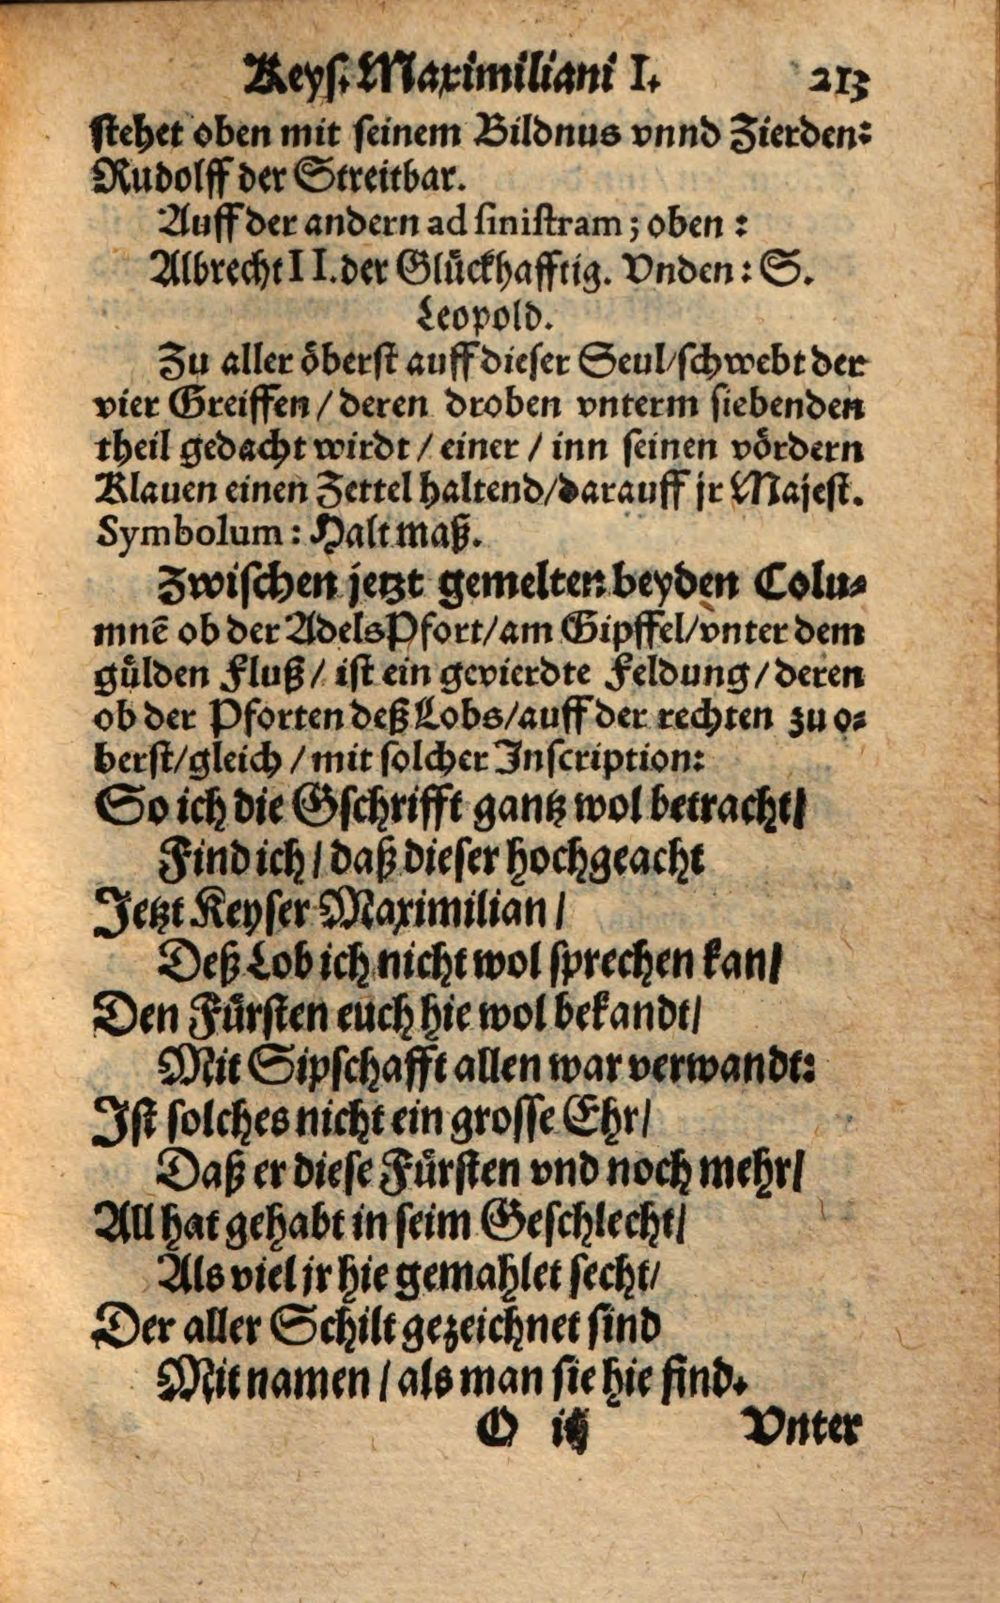 Keys. Maximiliani I. 213
stehet oben mit seinem Bildnus vnnd Zierden:
Rudolff der Streitbar.
Auff der andern ad sinistram; oben:
Albrecht II. der Glückhafftig. Vnden: S.
Leopold.
Zu aller öberst auff dieser Seul/schwebt der
vier Greiffen / deren droben vnterm siebenden
theil gedacht wirdt / einer / inn seinen vördern
Klauen einen Zettel haltend/darauff jr Majest.
Symbolum: Halt maß.
Zwischen jetzt gemelten beyden Colu-
mnē ob der AdelsPfort/am Gipffel/vnter dem
gülden Fluß / ist ein gevierdte Feldung / deren
ob der Pforten deß Lobs/auff der rechten zu o-
berst/gleich / mit solcher Inscription:
So ich die Gschrifft gantz wol betracht/
Find ich / daß dieser hochgeacht
Jetzt Keyser Maximilian /
Deß Lob ich nicht wol sprechen kan/
Den Fürsten euch hie wol bekandt/
Mit Sipschafft allen war verwandt:
Ist solches nicht ein grosse Ehr/
Daß er diese Fürsten vnd noch mehr/
All hat gehabt in seim Geschlecht/
Als viel jr hie gemahlet secht/
Der aller Schilt gezeichnet sind
Mit namen / als man sie hie find.
O iij Vnter